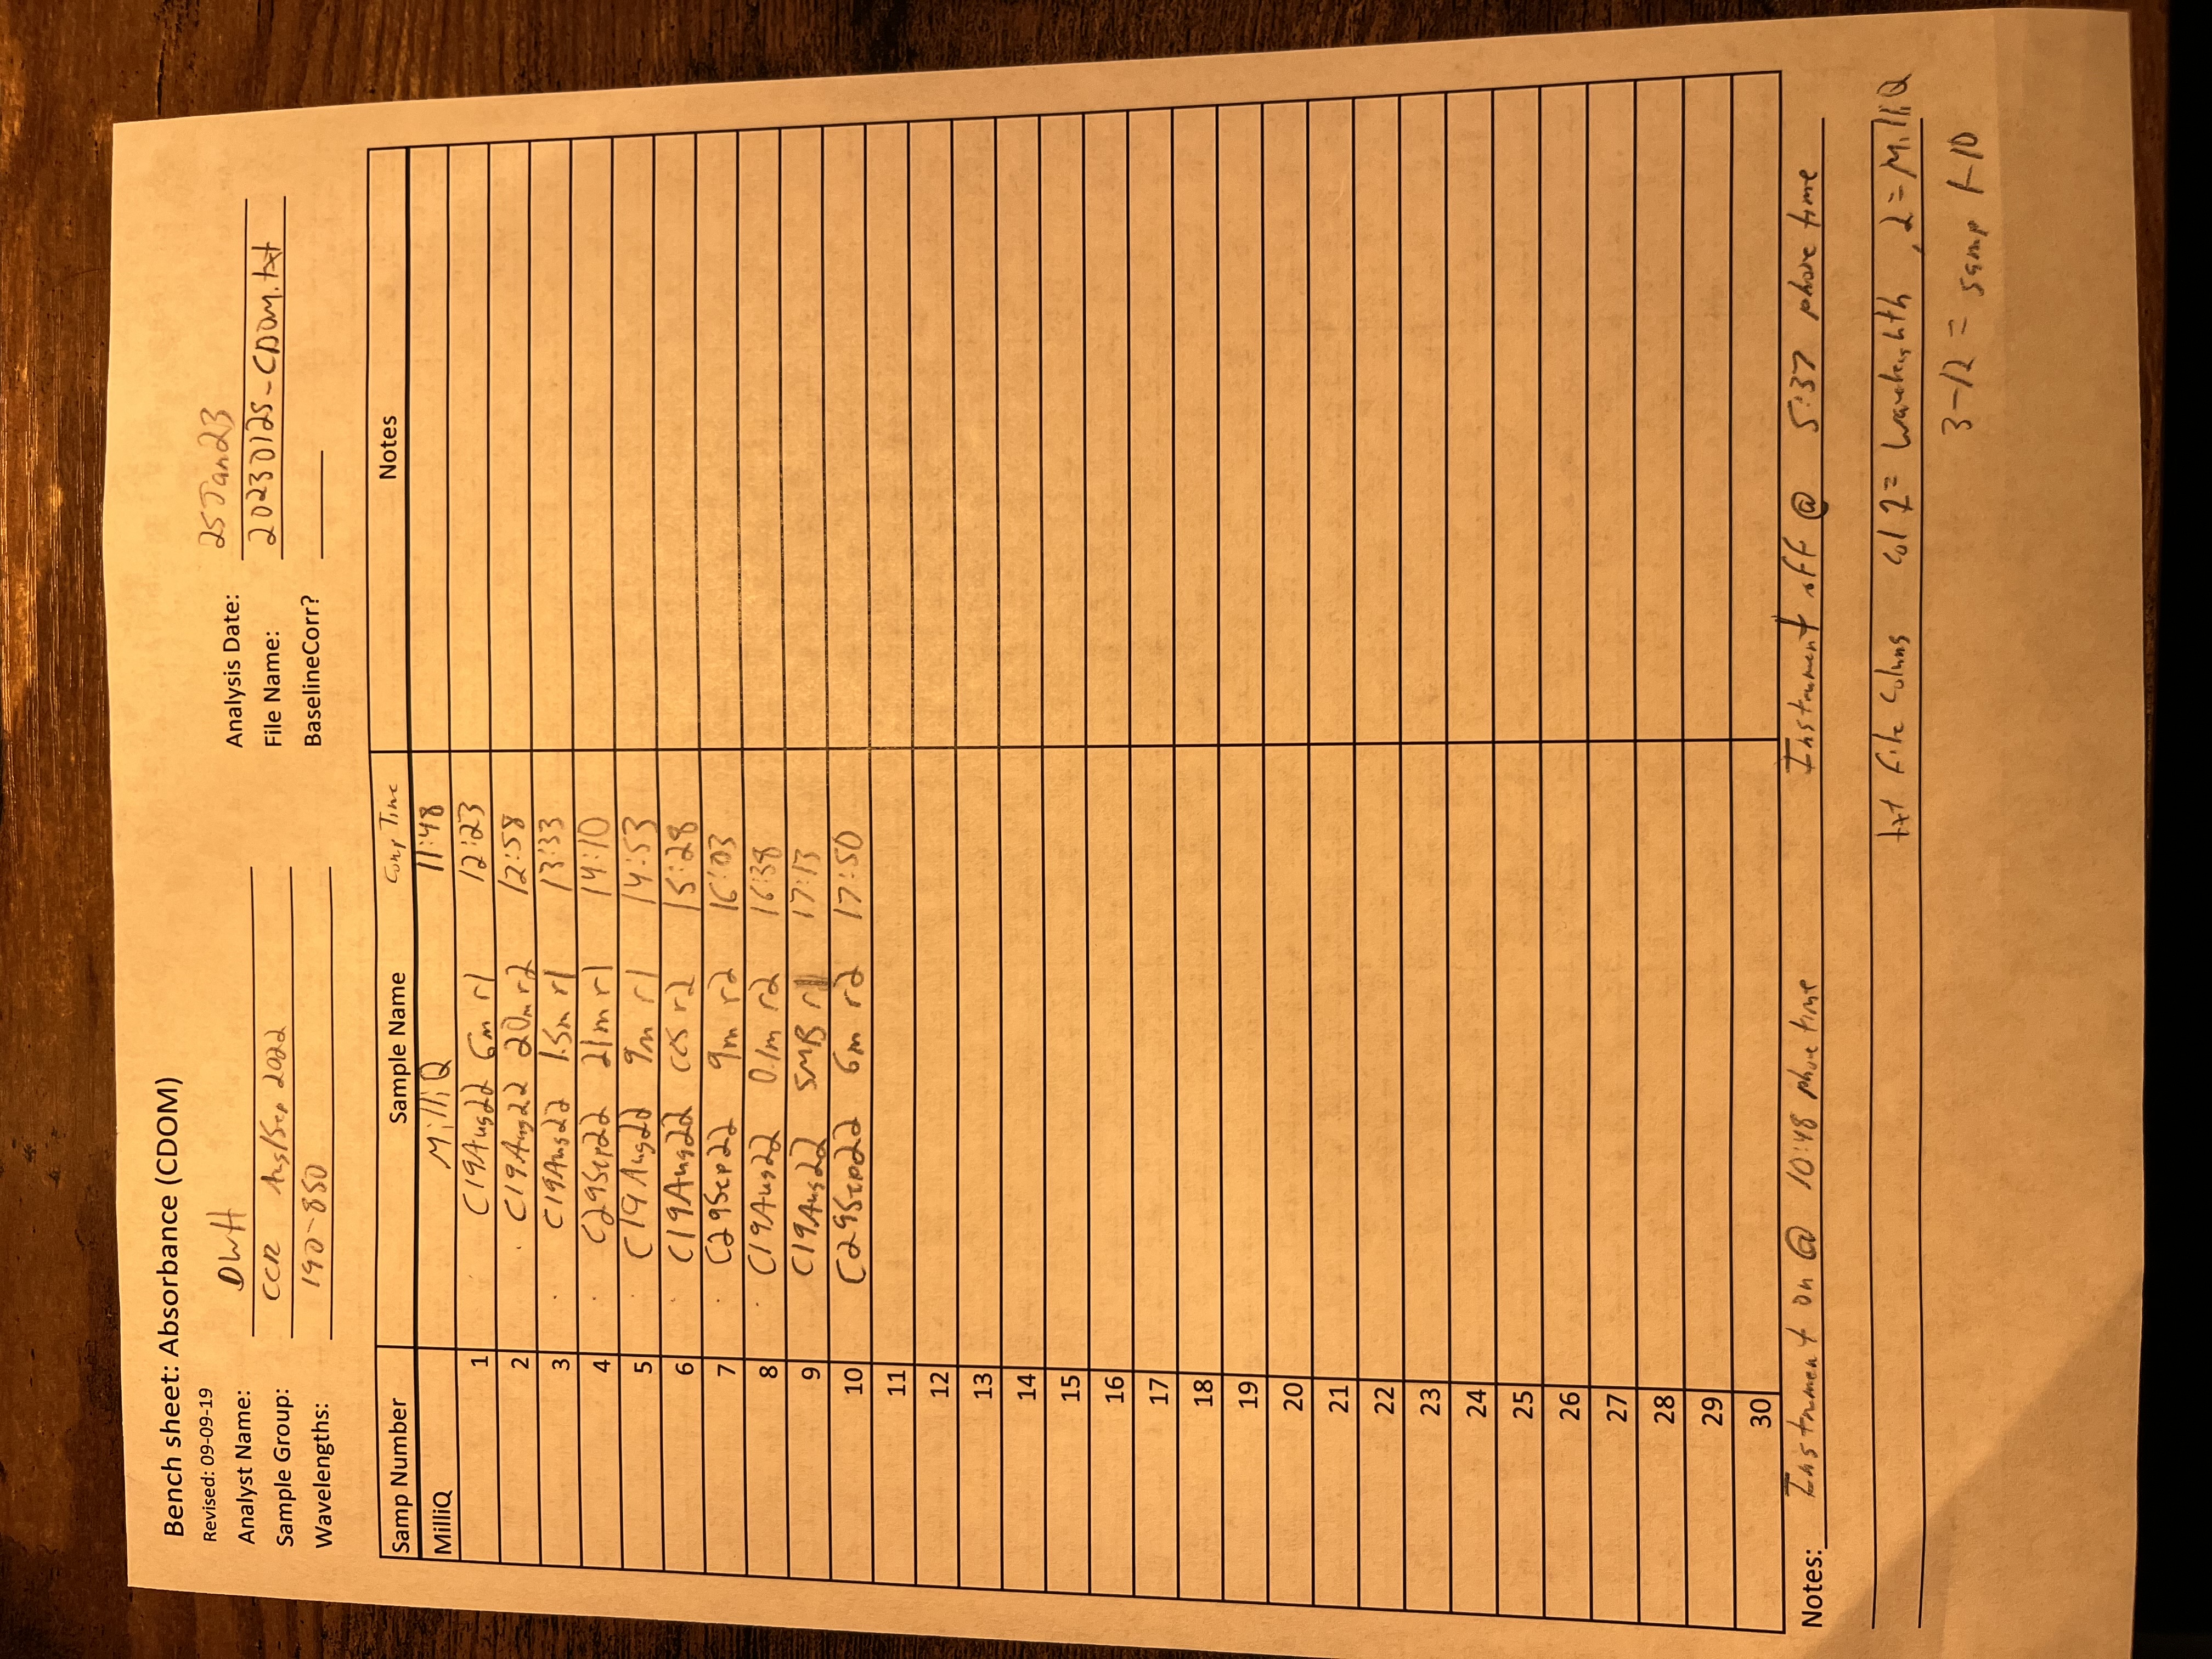 Bench sheet: Absorbance (CDOM)
Revised: 09-09-19
Analyst Name: DWH
Analysis Date: 25Jan23
Sample Group: CCR Aug/Sep 2022
File Name: 20230125-CDOM.txt
Wavelengths: 190-850
BaselineCorr?
Samp Number Sample Name Comp Time Notes
MilliQ MilliQ 11:48
1 C19Aug22 6m r1 12:23
2 C19Aug22 20m r2 12:58
3 C19Aug22 1.5m r1 13:33
4 C29Sep22 21m r1 14:10
5 C19Aug22 9m r1 14:53
6 C19Aug22 CCS r2 15:28
7 C29Sep22 9m r2 16:03
8 C19Aug22 0.1m r2 16:38
9 C19Aug22 SMB r1 17:13
10 C29Sep22 6m r2 17:50
11
12
13
14
15
16
17
18
19
20
21
22
23
24
25
26
27
28
29
30
Notes: Instrument on @ 10:48 phone time Instrument off @ 5:37 phone time
txt file Colums col 1= Wavelength , 2=MilliQ
3-12 = samp 1-10